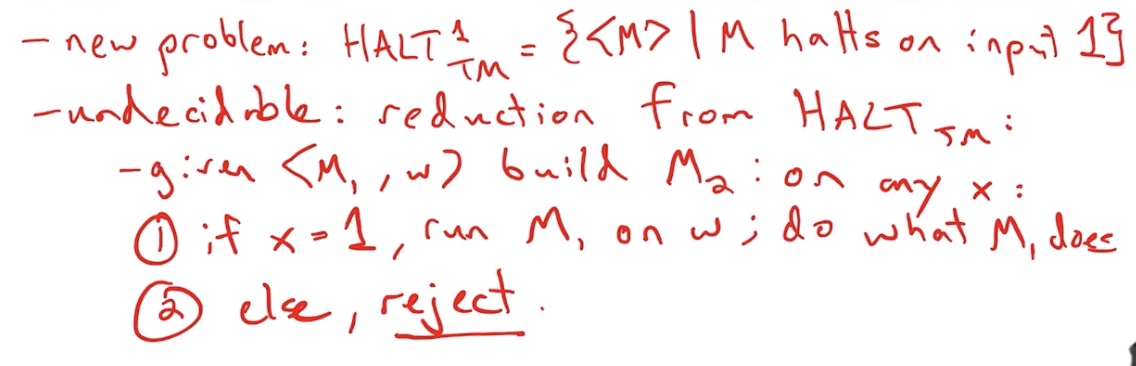 - new problem: HALT¹_TM = {<M> | M halts on input 1}
- undecidable: reduction from HALT_TM:
- given <M₁, w> build M₂: on any x:
① if x=1, run M₁ on w; do what M₁ does
② else, reject.